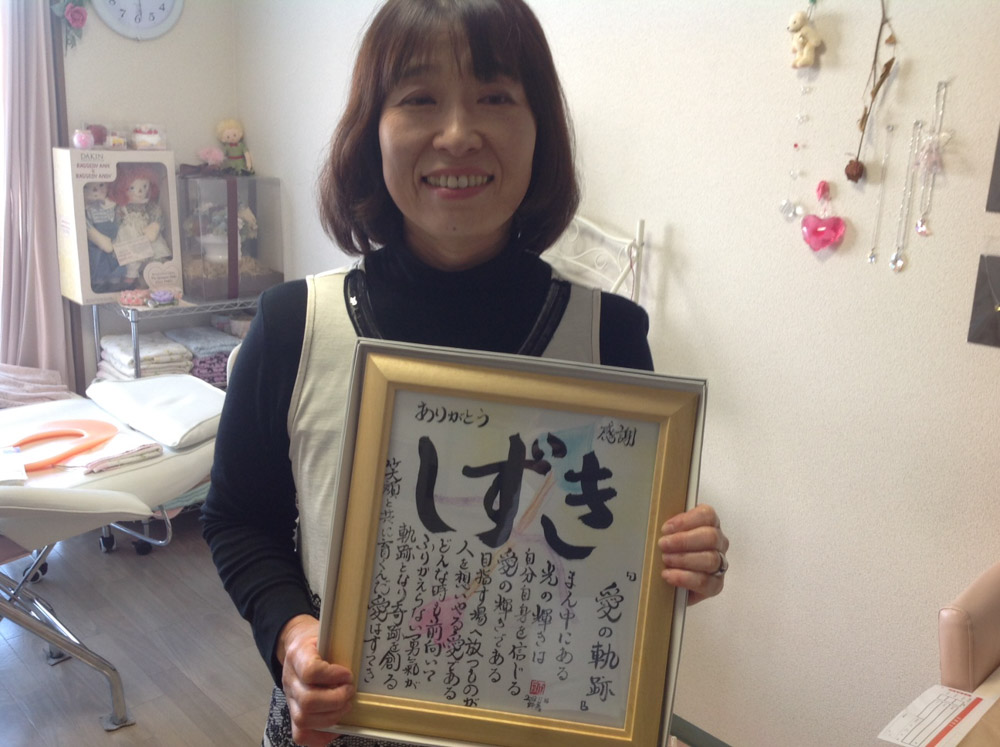 ありがとう
感謝
しずき
『愛の軌跡』
まん中にある
光の輝きは
自分自身を信じる
愛の輝きである
目指す場へ放つものが
人を想いやる愛である
どんな時も前向いて
ふりかえらない勇氣が
軌跡となり奇跡を創る
笑顔と共に育くんだ愛はすてき
DAKIN
RAGGEDY ANN
RAGGEDY ANDY